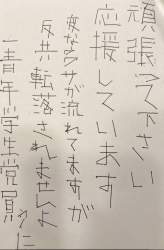 頑張って下さい
応援しています
変なウワサが流れてますが
反共転落されませんよ
一青年学生党員